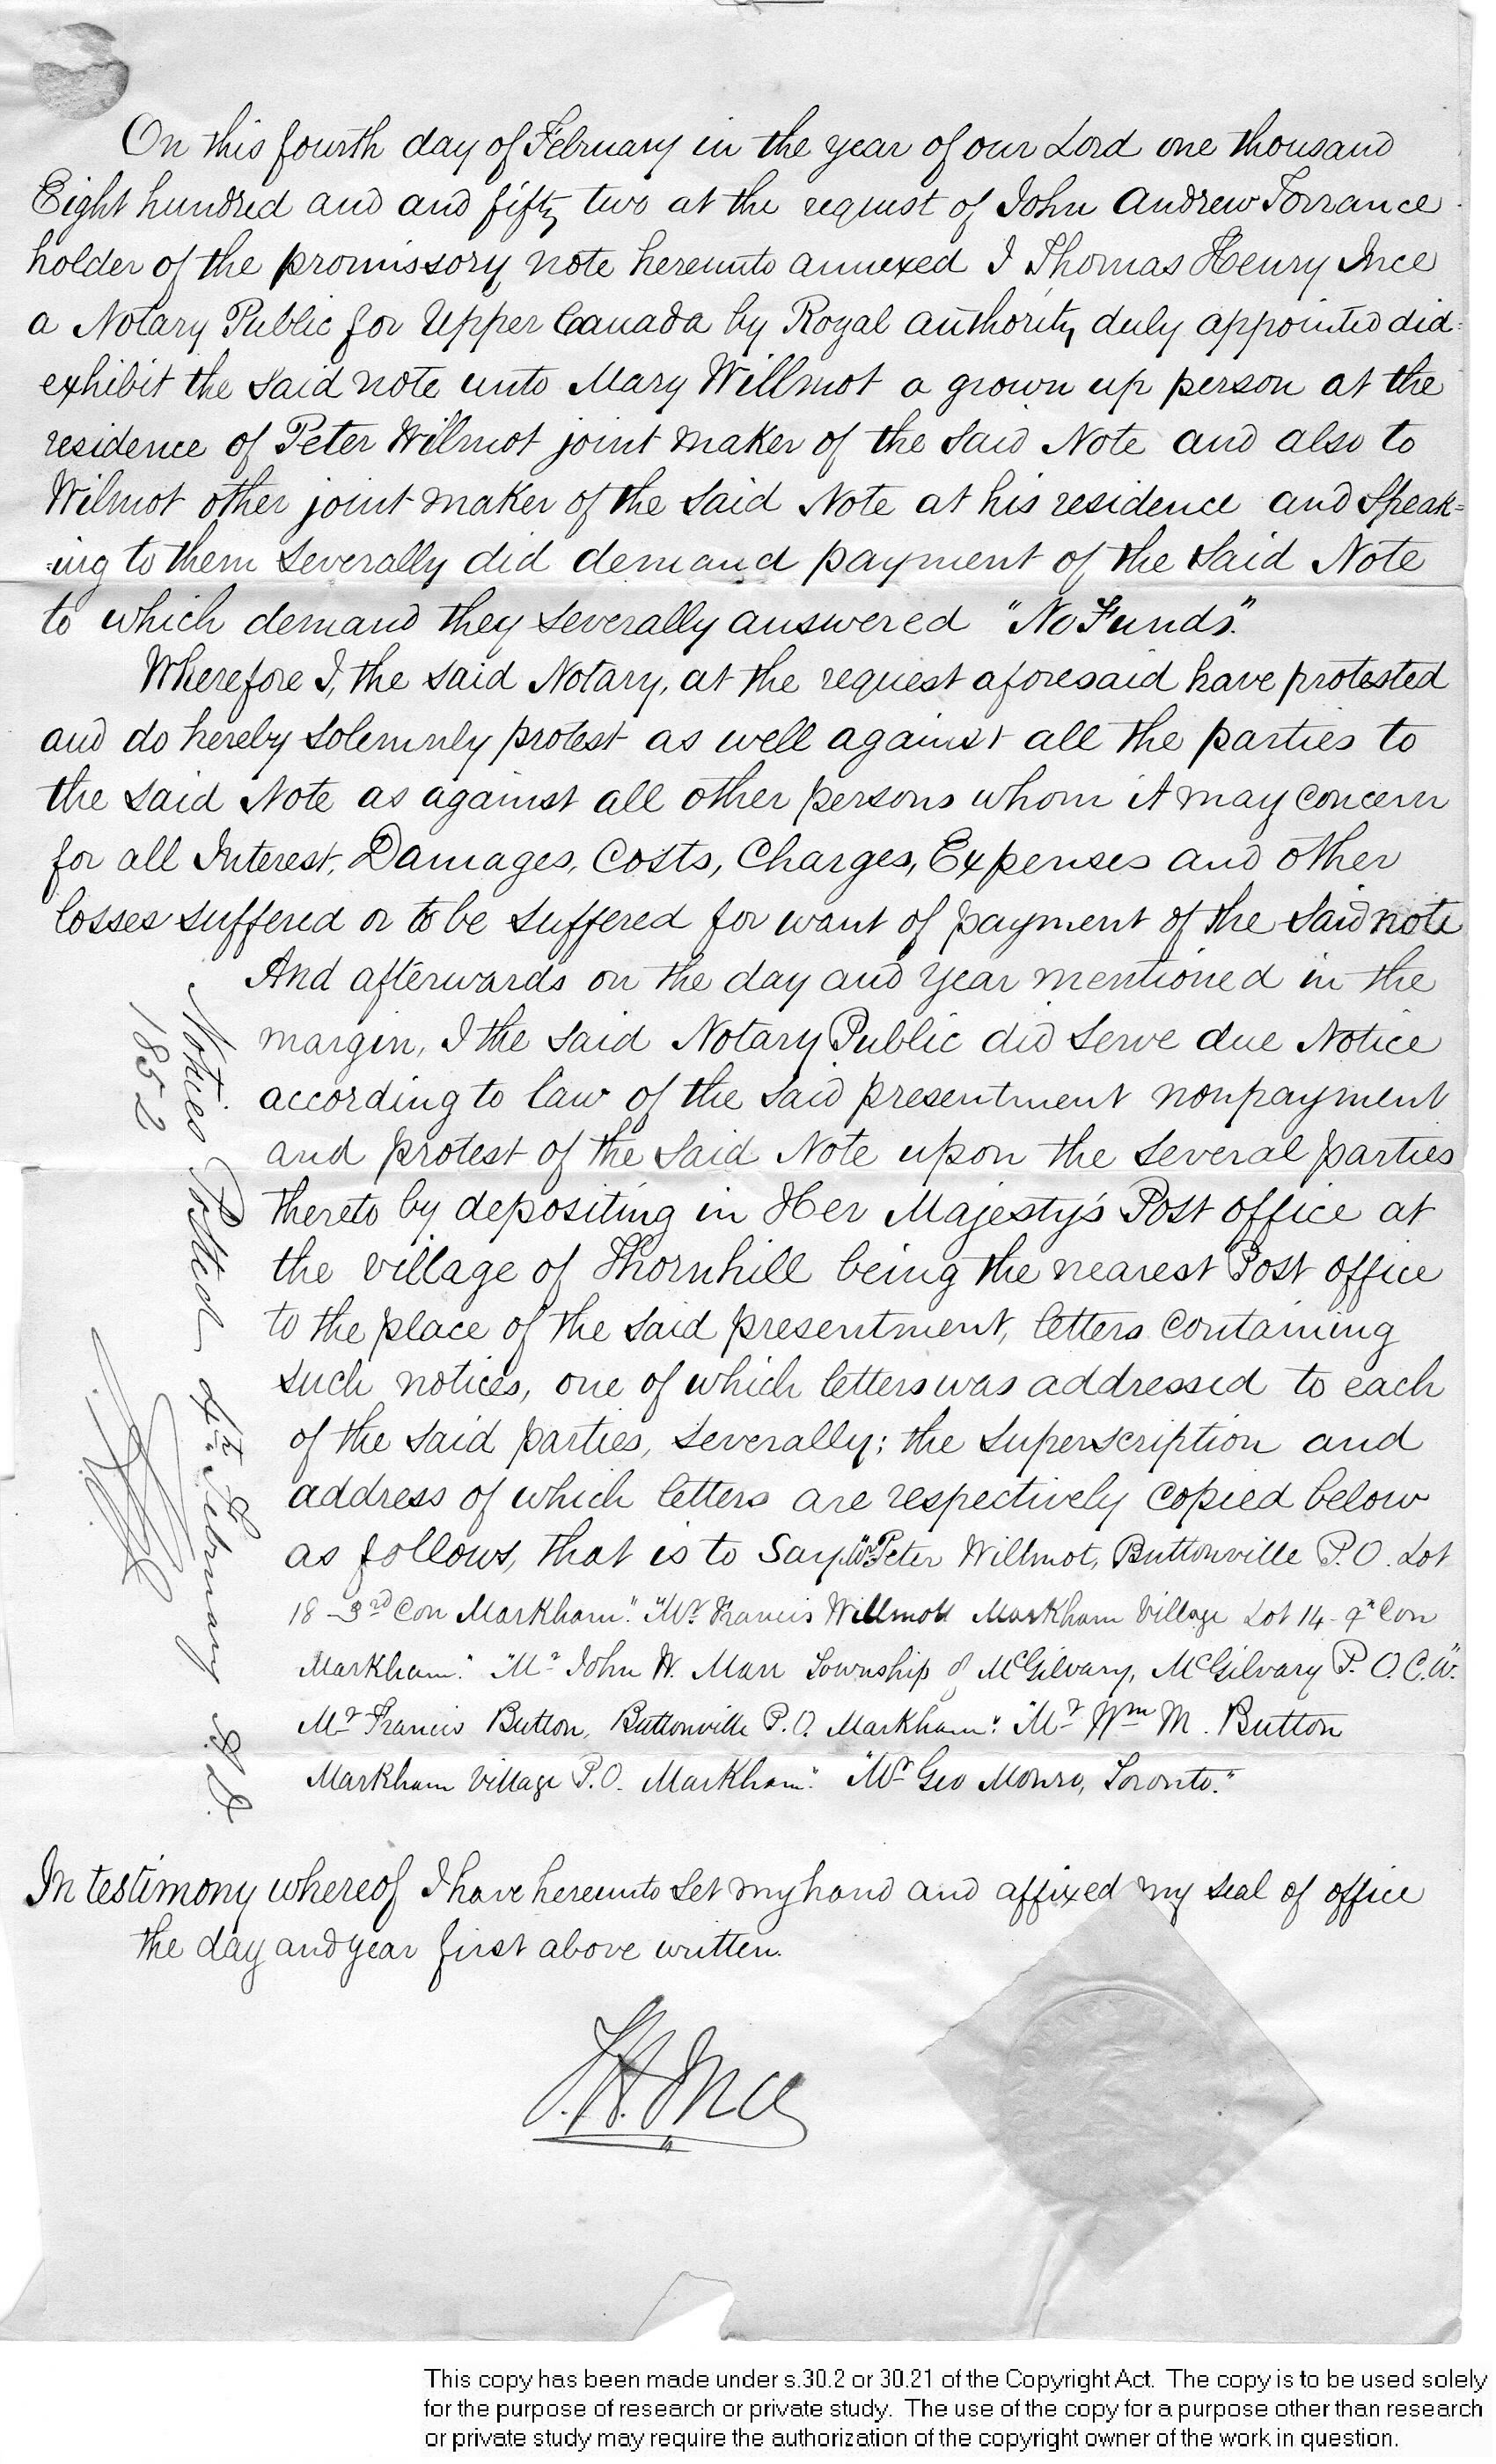 On this fourth day of February in the year of our Lord one thousand
Eight hundred and and fifty two at the request of John Andrew Torrance
holder of the promissory note hereunto annexed I Thomas Henry Ince
a Notary Public for Upper Canada by Royal authority duly appointed did
exhibit the said note unto Mary Willmot a grown up person at the
residence of Peter Wilmot joint maker of the said Note and also to
Wilmot other joint maker of the said Note at his residence and Speak=
=ing to them severally did demand payment of the said Note
to which demand they severally answered "No Funds."
Wherefore I, the said Notary, at the request aforesaid have protested
and do hereby solemnly protest as well against all the parties to
the said Note as against all other persons whom it may concern
for all Interest, Damages, Costs, Charges, Expenses and other
losses suffered or to be suffered for want of payment of the said note
And afterwards on the day and year mentioned in the
margin, I the said Notary Public did serve due Notice
according to law of the said presentment nonpayment
and protest of the said Note upon the several parties
thereto by depositing in Her Majesty's Post office at
the village of Thornhill being the nearest Post office
to the place of the said presentment, letters containing
such notices, one of which letters was addressed to each
of the said parties, severally; the superscription and
address of which letters are respectively copied below
as follows, that is to Say, "Mr Peter Willmot, Buttonville P.O. Lot
18 - 3rd Con Markham". "Mr Francis Willmott Markham Village Lot 14 - 9th Con
Markham." "Mr John W. Marr Township of McGilvary, McGilvary P.O. C.W."
Mr Francis Button, Buttonville P.O. Markham". "Mr Wm M. Button
Markham Village P.O. Markham". "Mr Geo Monro, Toronto."
Notices Posted 4th February A.D.
1852
In testimony whereof I have hereunto set my hand and affixed my seal of office
the day and year first above written.
T.H. Ince
This copy has been made under s.30.2 or 30.21 of the Copyright Act. The copy is to be used solely
for the purpose of research or private study. The use of the copy for a purpose other than research
or private study may require the authorization of the copyright owner of the work in question.